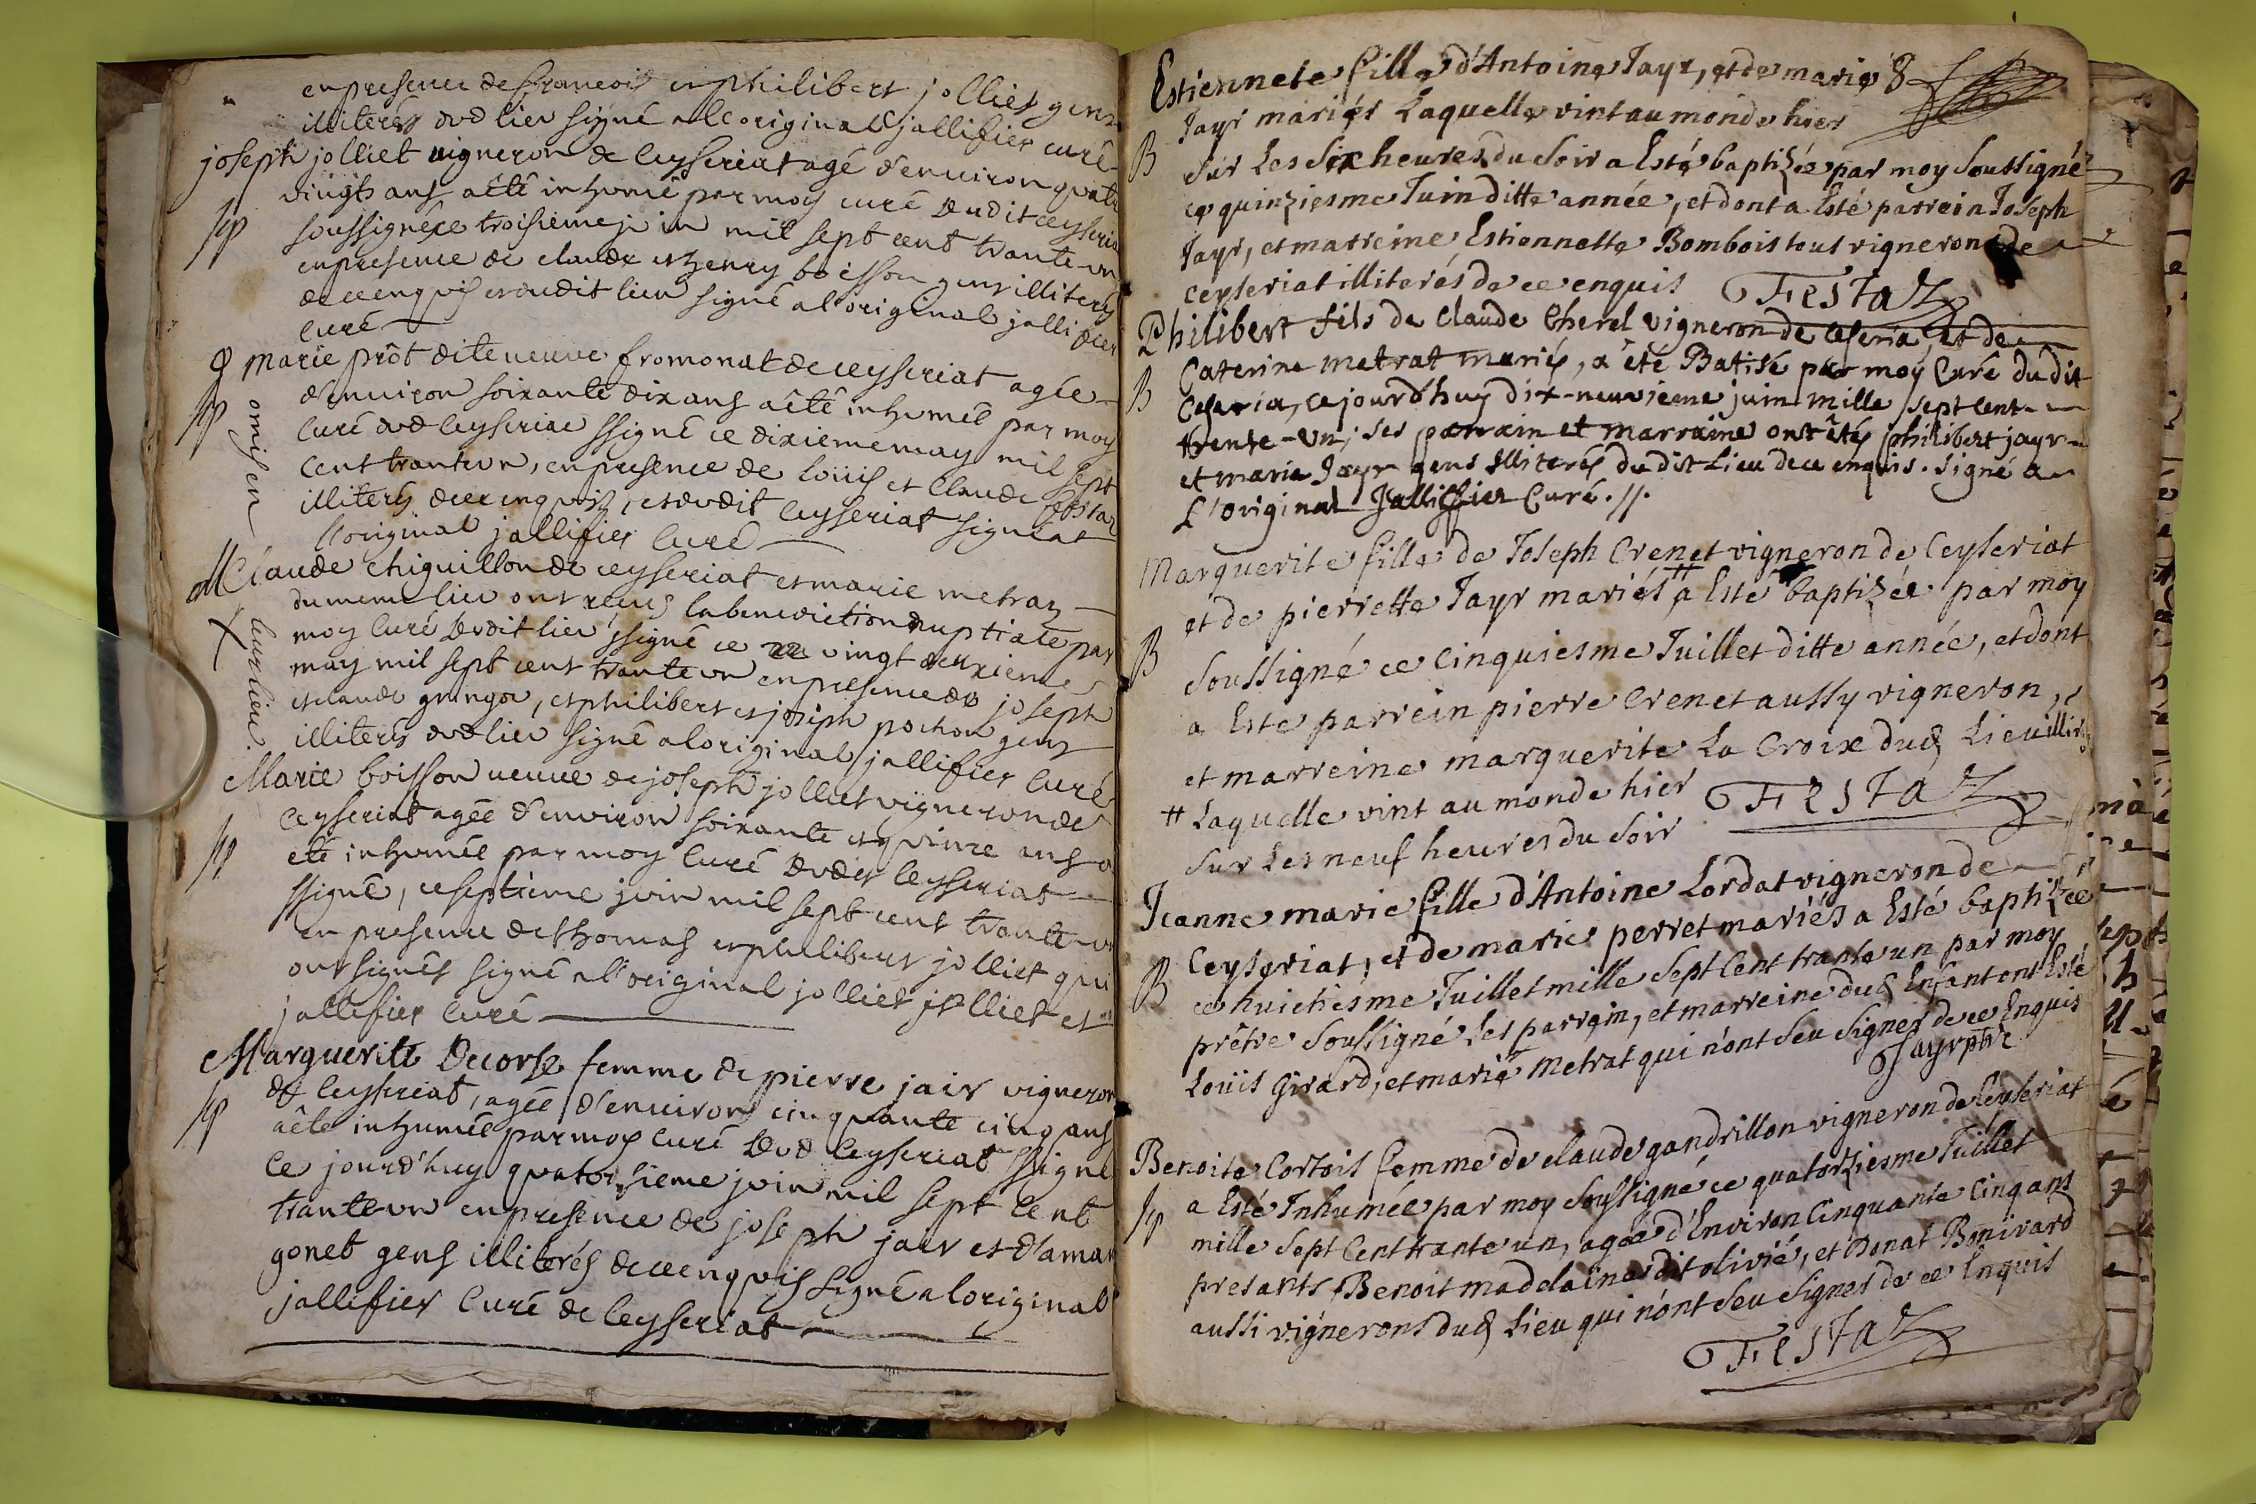 en presence de francois et philibert jolliet gens
illiterés dud lieu signé a l'original jallifier curé
joseph jolliet vigneron de Ceyseriat agé d'environ quatre
vingts ans a èté inhumé par moy curé dudit ceyseria
soussigné ce troisieme juin mil sept cent trante un
en presence de claude et henry boisson gens illiterés
de ce enquis et dudit lieu signé a l'original jallifier
curé
Marie prôt dite veuve fromonat de ceyseriat agée
d'environ soixante dix ans a èté inhumée par moy
Curé dud Ceyseriat ssigné ce dixieme may mil sept
cent trante un, en presence de Loüis et Claude festaz
illiterés de ce enquis, et dudit Ceyseriat signé a
l'original jallifier Curé
omis en
leur lieu
Claude chiguillon de ceyseriat et marie metraz
du meme lieu ont reçus la benediction nuptiale par
moy Curé dudit lieu ssigné ce 22 vingt deuxieme
may mil sept cent trante un en presence de joseph
et claude gringoz, et philibert et joseph pochon gens
illiterés dud lieu signé a loriginal jallifier Curé
Marie boisson veuve de joseph jolliet vigneron de
Ceyseriat agée d'environ soixante et quinze ans a
eté inhumée par moy Curé dudit Ceyseriat
ssigné, ce septieme juin mil sept cent trante un
en presence de thomas et philibert jolliet qui
ont signés signé a l'original jolliet jolliet et
jallifier Curé
Marguerite Decorse femme de pierre jair vigneron
de Ceyseriat, agée d'environ cinquante cinq ans
a été inhumée par moy Curé Dud Ceyseriat ssigné
Ce jourd'huy quatorsieme juin mil sept Cent
trante un en presence de joseph jair et d'amar
gonet gens illiterés de ce enquis signé a loriginal
jallifier Curé de Ceyseriat
Estiennete fille d'Antoine Jayr, et de marie 8
Jayr mariés Laquelle vint au monde hier
B
Sur Les Six heures du Soir a Esté baptizée par moy Soussigné
ce quinziesme Juin ditte année, et dont a Esté parrein Joseph
Jayr, et marreine Estiennette Bombois tous vignerons de
ceyseriat illiterés de ce enquis FestaZ
Philibert fils de Claude Cherel vigneron de Ceseria, et de
Caterine metrat mariés, a été Batisé par moy Curé du dit
B
Ceseria, ce jourd'huy dix-neuvieme juin mille sept cent
trente-un; ses parrain et marraine ont étés philibert jayr
et marie Jayr gens illiterés du dit Lieu de ce enquis. signé a
L'original Jalliffier Curé.//.
Marguerite fille de Joseph Crenet vigneron de Ceyseriat
et de pierrette Jayr mariés # a Esté baptizée par moy
B
Soussigné ce Cinquiesme Juillet ditte année, et dont
a Esté parrein pierre Crenet aussy vigneron,
et marreine marguerite La Croix dud Lieu illirés
# Laquelle vint au monde hier FestaZ
Sur Les neuf heures du Soir
Jeanne marie fille d'Antoine Lordat vigneron de
Ceyseriat, et de marie perret mariés a Esté baptizée
B
ce huictiesme Juillet mille Sept Cent trante un par moy
prêtre Soussigné Les parrein, et marreine dud Enfant ont Esté
Loüis Girard, et marie Metrat qui n'ont Seu Signer de ce Enquis
Jayr ptre
Benoite Cortois femme de claude gandrillon vigneron de Ceyseriat
a Esté Inhumée par moy Soussigné ce quatorziesme Juillet
mille Sept Cent trante un, agée d'Environ Cinquante Cinq ans
presants Benoit madelaine dit olivié, et Donat Bonivard
aussi vignerons dud Lieu qui n'ont Seu Signer de ce Enquis
FestaZ